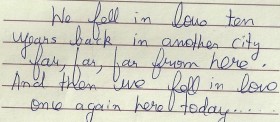 We fell in love ten
years back in another city
far, far, far from here.
And then we fell in love
once again here today....